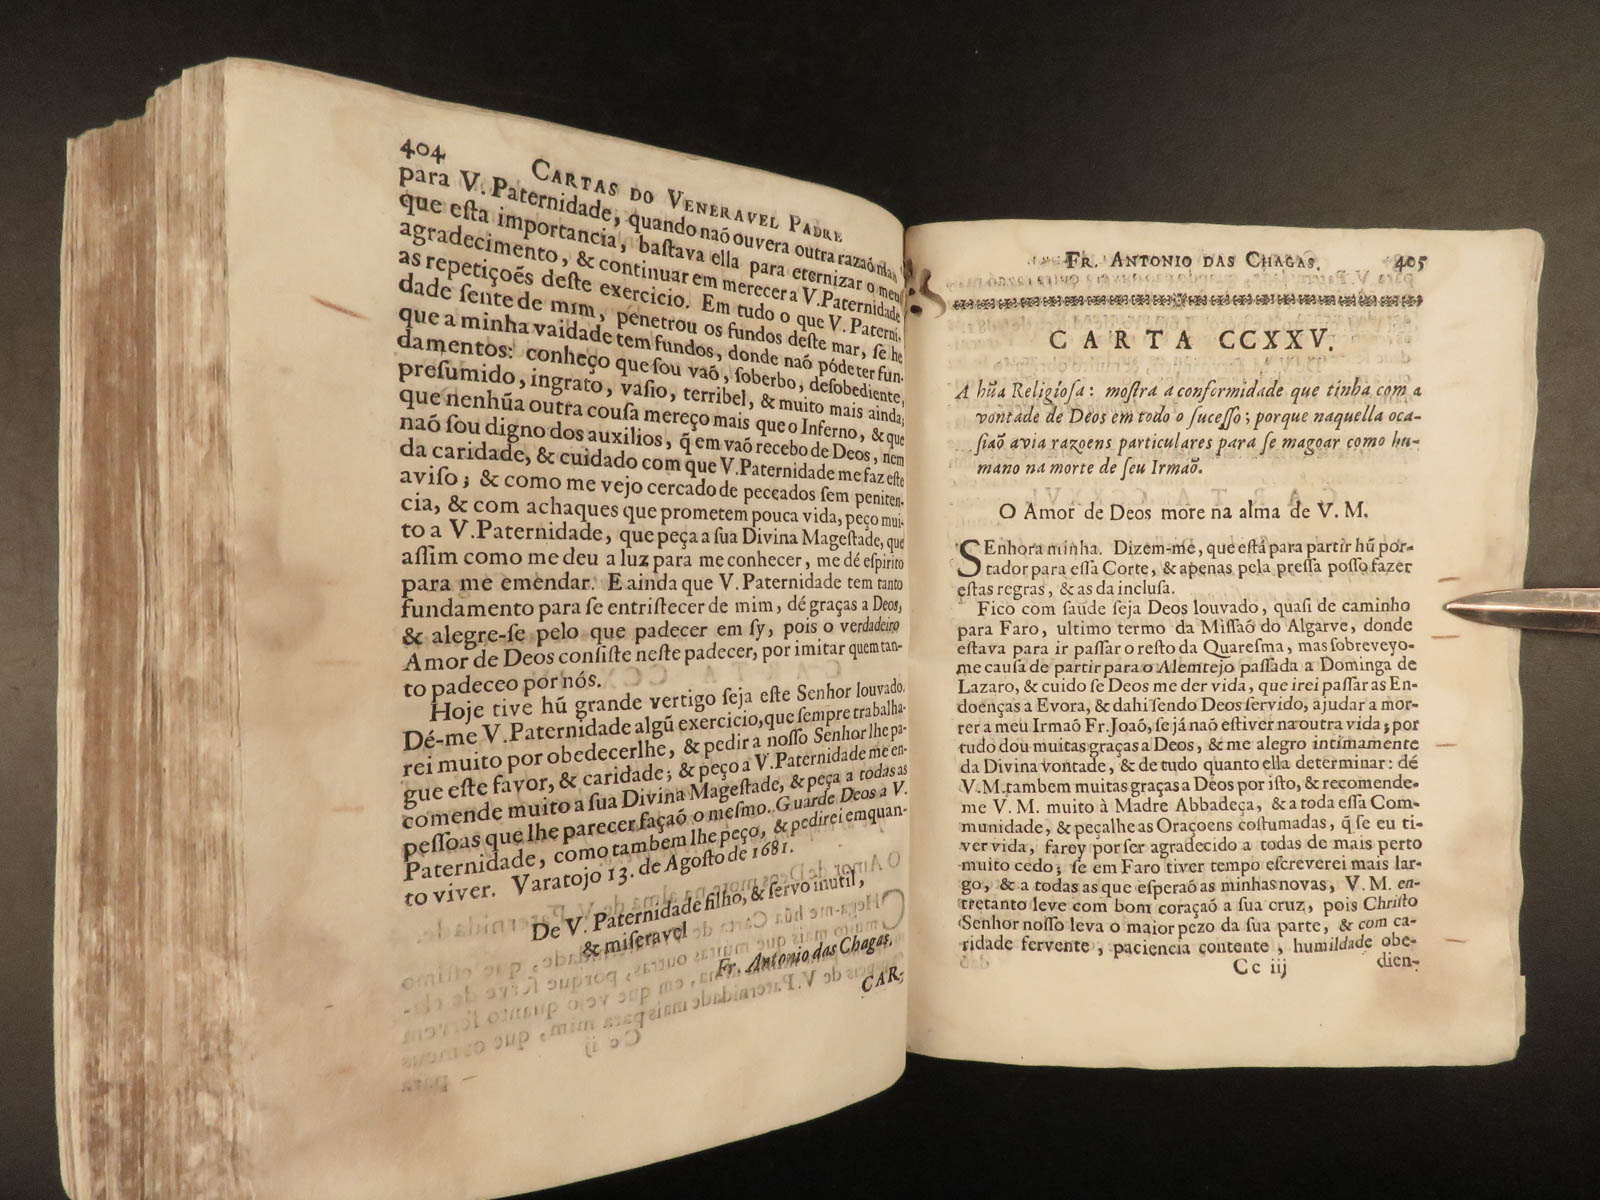 404
CARTAS DO VENERAVEL PADRE
para V. Paternidade, quando naõ ouvera outra razaõ mais
que eſta importancia, baſtava ella para eternizar o meu
agradecimento, & continuar em merecer a V. Paternidade
as repetiçoẽs deſte exercicio. Em tudo o que V. Paterni-
dade ſente de mim, penetrou os fundos deſte mar, ſe he
que a minha vaidade tem fundos, donde naõ póde ter fun-
damentos: conheço que ſou vaõ, ſoberbo, deſobediente,
preſumido, ingrato, vaſio, terribel, & muito mais ainda;
que nenhũa outra couſa mereço mais que o Inferno, & que
naõ ſou digno dos auxilios, q̃ em vaõ recebo de Deos, nem
da caridade, & cuidado com que V. Paternidade me faz eſte
aviſo; & como me vejo cercado de peccados ſem peniten-
cia, & com achaques que prometem pouca vida, peço mui-
to a V. Paternidade, que peça a ſua Divina Mageſtade, que
aſſim como me deu a luz para me conhecer, me dé eſpirito
para me emendar. E ainda que V. Paternidade tem tanto
fundamento para ſe entriſtecer de mim, dé graças a Deos,
& alegre-ſe pelo que padecer em ſy, pois o verdadeiro
Amor de Deos conſiſte neſte padecer, por imitar quem tan-
to padeceo por nós.
Hoje tive hũ grande vertigo ſeja eſte Senhor louvado.
Dé-me V. Paternidade algũ exercicio, que ſempre trabalha-
rei muito por obedecerlhe, & pedir a noſſo Senhor lhe pa-
gue eſte favor, & caridade; & peço a V. Paternidade me en-
comende muito a ſua Divina Mageſtade, & peça a todas as
peſſoas que lhe parecer façaõ o meſmo. Guarde Deos a V.
Paternidade, como tambem lhe peço, & pedirei emquan-
to viver. Varatojo 13. de Agoſto de 1681.
De V. Paternidade filho, & ſervo inutil,
& miſeravel
Fr. Antonio das Chagas.
CAR-
FR. ANTONIO DAS CHAGAS. 405
CARTA CCXXV.
A hũa Religioſa: moſtra a conformidade que tinha com a
vontade de Deos em todo o ſuceſſo; porque naquella oca-
ſiaõ avia razoens particulares para ſe magoar como hu-
mano na morte de ſeu Irmaõ.
O Amor de Deos more na alma de V. M.
SEnhora minha. Dizem-me, que eſtá para partir hũ por-
tador para eſſa Corte, & apenas pela preſſa poſſo fazer
eſtas regras, & as da incluſa.
Fico com ſaude ſeja Deos louvado, quaſi de caminho
para Faro, ultimo termo da Miſſaõ do Algarve, donde
eſtava para ir paſſar o reſto da Quareſma, mas ſobreveyo-
me cauſa de partir para o Alemtejo paſſada a Dominga de
Lazaro, & cuido ſe Deos me der vida, que irei paſſar as En-
doenças a Evora, & dahi ſendo Deos ſervido, ajudar a mor-
rer a meu Irmaõ Fr. Joaõ, ſe já naõ eſtiver na outra vida; por
tudo dou muitas graças a Deos, & me alegro intimamente
da Divina vontade, & de tudo quanto ella determinar: dé
V.M. tambem muitas graças a Deos por iſto, & recomende-
me V. M. muito à Madre Abbadeça, & a toda eſſa Com-
munidade, & peçalhe as Oraçoens coſtumadas, q̃ ſe eu ti-
ver vida, farey por ſer agradecido a todas de mais perto
muito cedo; ſe em Faro tiver tempo eſcreverei mais lar-
go, & a todas as que eſperaõ as minhas novas, V. M. en-
tretanto leve com bom coraçaõ a ſua cruz, pois Chriſto
Senhor noſſo leva o maior pezo da ſua parte, & com ca-
ridade fervente, paciencia contente, humildade obe-
Cc iij
dien-